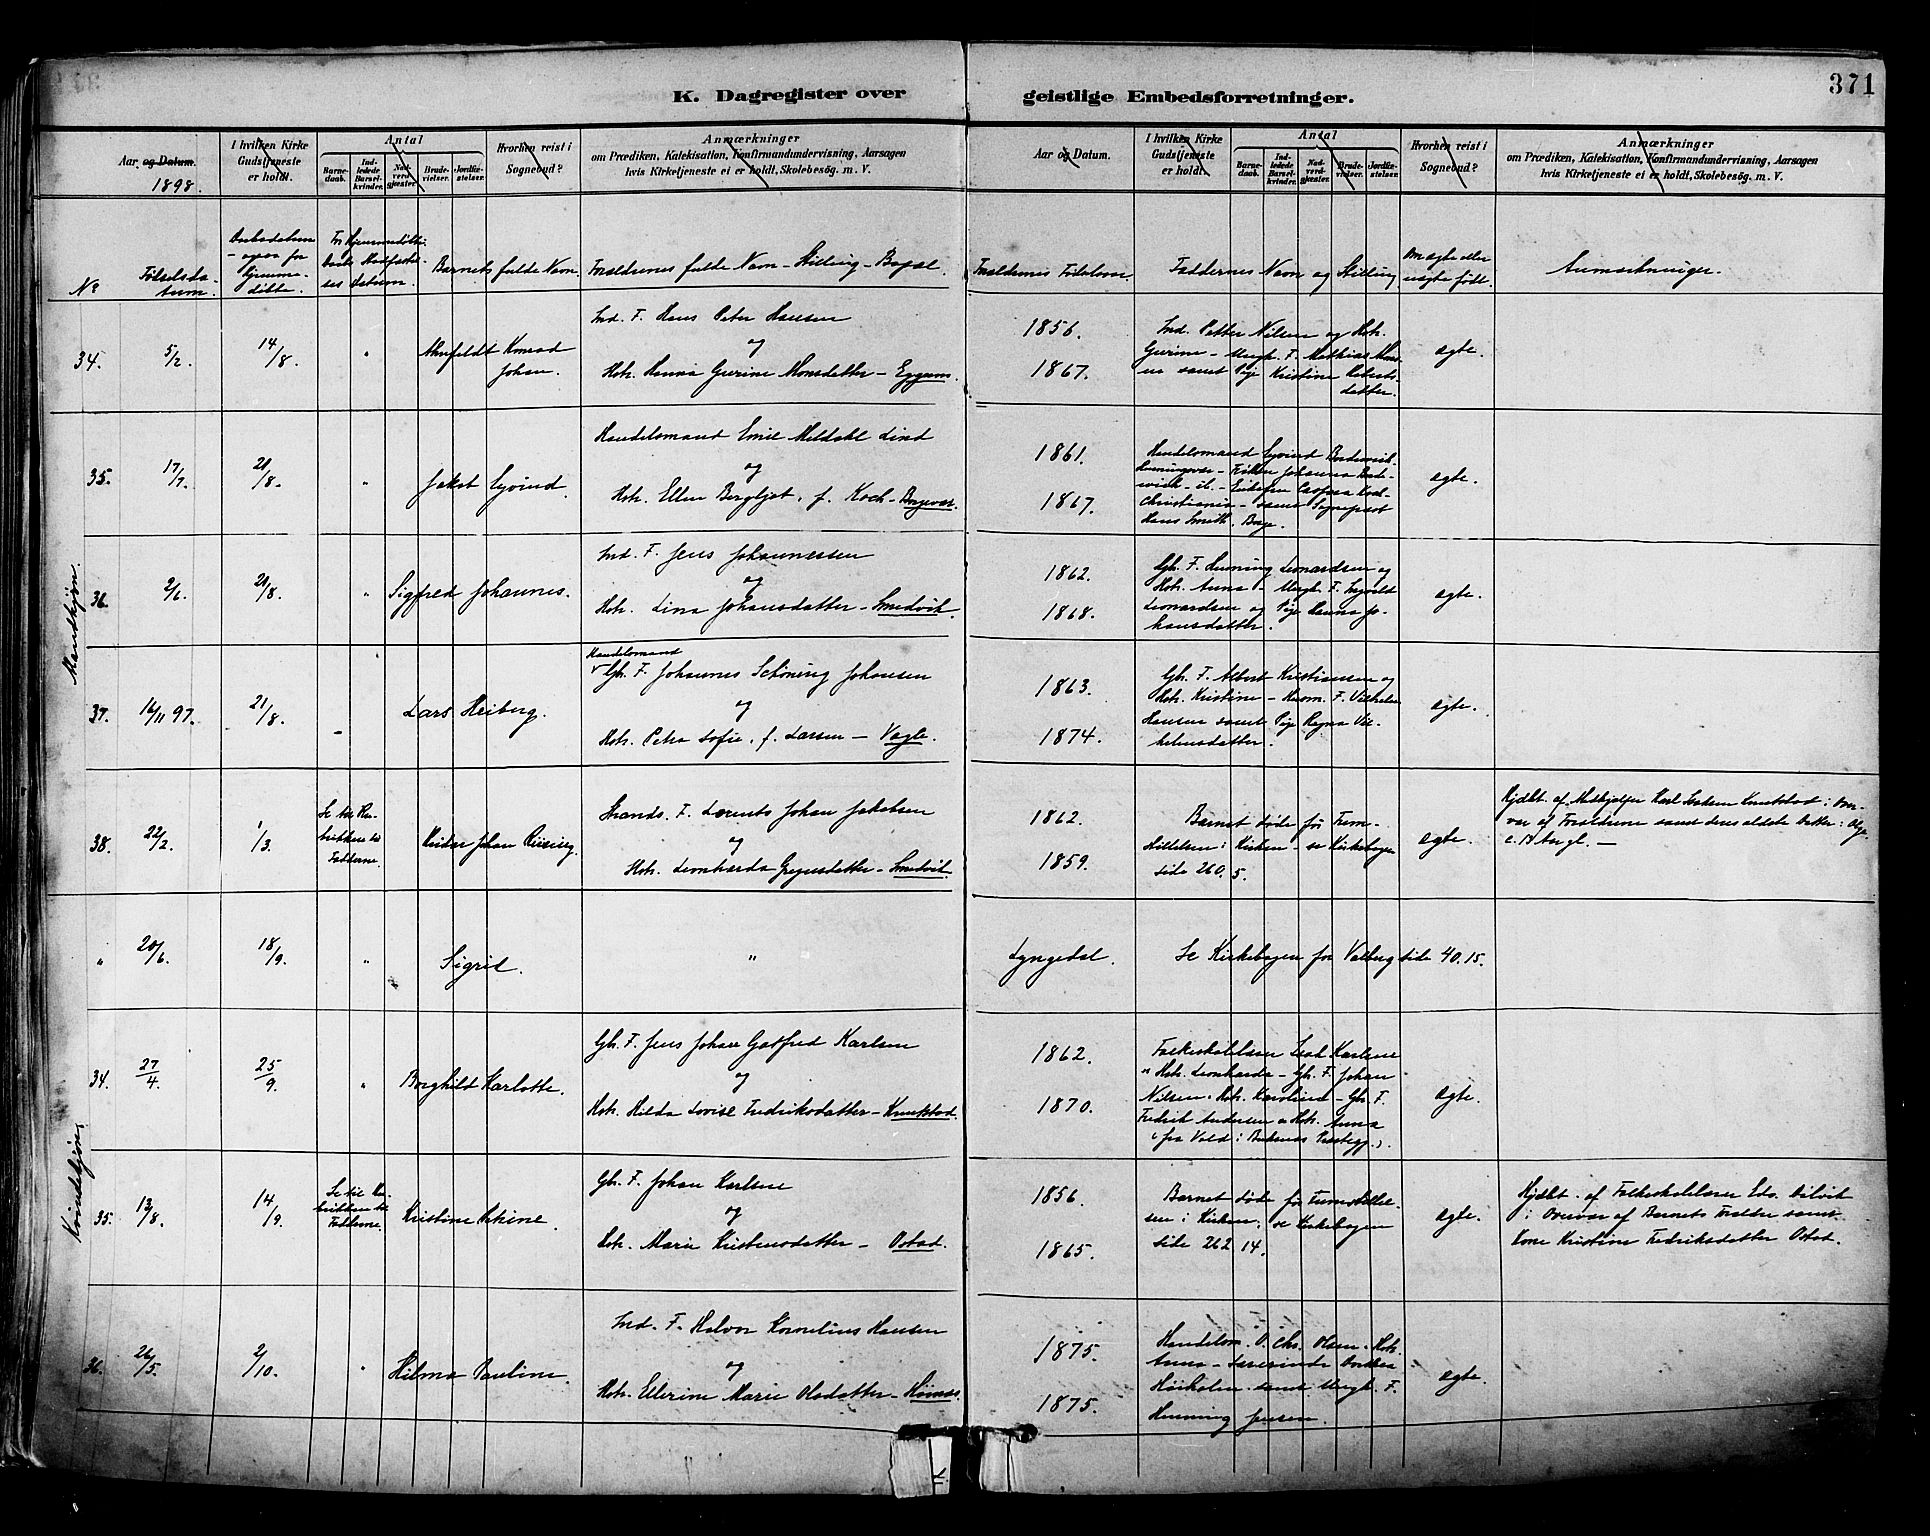 371
K. Dagregister over geistlige Embedsforretninger.
Aar og Datum.
1898.
I hvilken Kirke Gudstjeneste er holdt.
Antal
Barnedaab.
Indledede Barselkvinder.
Nadverdgjæster.
Brudevielser.
Jordfæstelser.
Hvorhen reist i Sognebud?
Anmærkninger
om Prædiken, Katekisation, Konfirmandundervisning, Aarsagen
hvis Kirketjeneste ei er holdt, Skolebesøg. m. V.
Aar og Datum.
I hvilken Kirke Gudstjeneste er holdt.
Antal
Barnedaab.
Indledede Barselkvinder.
Nadverdgjæster.
Brudevielser.
Jordfæstelser.
Hvorhen reist i Sognebud?
Anmærkninger
om Prædiken, Katekisation, Konfirmandundervisning, Aarsagen
hvis Kirketjeneste ei er holdt, Skolebesøg. m. V.
No
Fødselsdatum.
Daabsdatum
Barnets fulde Navn
Forældrenes fulde Navn - Stilling - Bopæl.
Forældrenes Fødselsaar
Faddernes Navn og Stilling
Om ægte eller uægte født.
Anmærkninger.
Mandkjøn.
34. 5/2. 14/8. " Konrad Johan.
Ind. F. Hans Peter Hansen
og
Hst. Hanna Gurine Monsdatter - Eggum.
1856.
1867.
Ind. Petter Nilsen og Hst.
Gurine - Ungk. F. Mathias
samt Pige Kristine
datter.
ægte.
35. 17/7. 21/8. " Jakob Eyvind.
Handelsmand Emil Meldahl Lind
og
Hst. Ellen Bergljot, f. Koch - Borgevær.
1861.
1867.
Handelsmand Eyvind
Henningsvær - Frøken Johanna
Christiania - samt Sognepræst
Hans Smith, Borge.
ægte.
36. 2/6. 21/8. " Sigfred Johannes.
Ind. F. Jens Johannessen
og
Hst. Lina Johansdatter - Smedvik.
1862.
1868.
Gbr. F. Henning Leonardsen og
Hst. Anna - Ungk. F. Ingvald
Leonardsen og Pige Hanna Jo-
hansdatter.
ægte.
37. 16/11 97. 21/8. " Lars Heiberg.
Handelsmand
Gbr. F. Johannes Schöning Johansen
og
Hst. Petra Sofie, f. Larsen - Vagle.
1863.
1874.
Gbr. F. Albert Kristiansen og
Hst. Kristine - F. Vilhelm
Hansen samt Pige Regna Vil-
helmsdatter.
ægte.
38. 22/2. 1/3. Se til Ru-
brikken til
Fadderne. Johan
Strands. F. Lorents Johan Jakobsen
og
Hst. Leonharda Gregersdatter - Smedvik.
1862.
1859.
Barnet døde før Frem-
stillelsen i Kirken - se Kirkebogen
side 260. 5.
ægte.
Hjdbt. af Medhjælper Karl Knutstad i Over-
vær af Forældrene samt deres ældste Datter
Kvindekjøn.
" 20/6. 18/9. " Sigrid. "
Lyngedal.
Se Kirkebogen for Valberg side 40. 15.
34. 27/4. 25/9. " Borghild Karlotte.
Gbr. F. Jens Johan Gotfred Karlsen
og
Hst. Hilda Lovise Fredriksdatter - Knutstad.
1862.
1870.
Folkeskolelærer Karlsen
Hst. Leonharda - Gbr. F. Johan
Nilsen, Hst. Karoline - Gbr. F.
Fredrik Andersen og Hst. Anna
(fra Vold i Buksnes Præstegj.).
ægte.
35. 13/8. 14/9. Se til Ru-
brikken til
Fadderne. Kristine
Gbr. F. Johan Karlsen
og
Hst. Marie Kristensdatter - Ostad.
1856.
1865.
Barnet døde før Fremstillel-
sen i Kirken, se Kirkebogen
side 262 14.
ægte.
Hjdbt. af Folkeskolelærer Edv.
i Overvær af Barnets Fader samt
Kone Kristine Fredriksdatter Ostad.
36. 26/5. 2/10. " Hilma Pauline.
Ind. F. Halvor Kornelius Hansen
og
Hst. Ellerine Marie Olsdatter -
1875.
1875.
Handelsm. O. Chr. Olsen, Hst.
Anna -
samt Ungk. F.
Henning Jensen.
ægte.